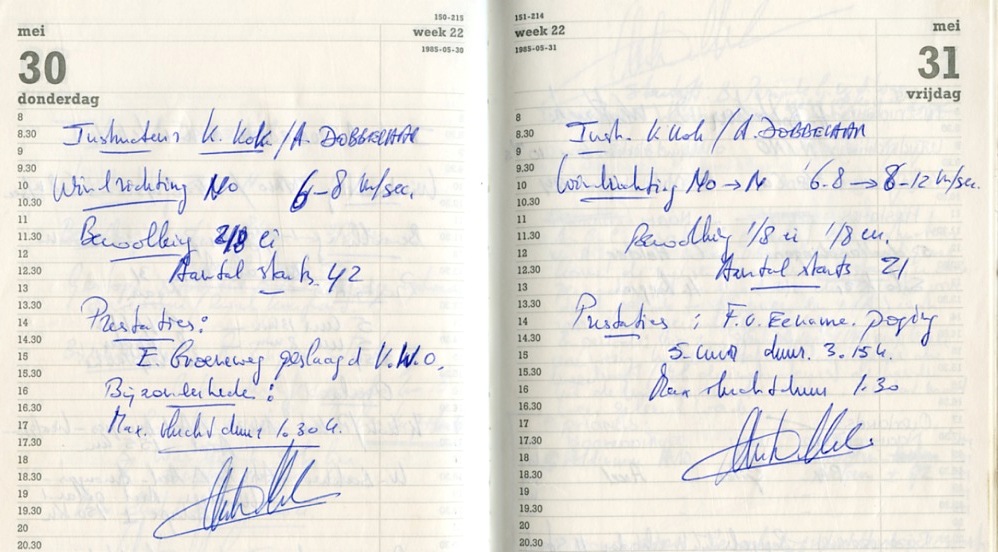 mei
150-215
week 22
1985-05-30
30
donderdag
8
8.30 Instructeur K. Kok / A. DOBBELAAR
9
9.30
10 Windrichting NO 6-8 m/sec.
10.30
11
11.30 Bewolking 2/8 ci
12
12.30 Aantal starts 42
13
13.30
14 Prestaties:
14.30
15 E. Groeneweg geslaagd V.W.O.
15.30
16 Bijzonderhede:
16.30
17 Max. vluchtduur 1.30 u.
17.30
18
18.30
19
19.30
20
20.30
151-214
week 22
1985-05-31
mei
31
vrijdag
8
8.30 Instr. K Kok / A. DOBBELAAR
9
9.30
10 Windrichting NO → N 6-8 → 8-12 m/sec.
10.30
11
11.30 Bewolking 1/8 ci 1/8 cu.
12
12.30 Aantal starts 21
13
13.30
14 Prestaties: F. v. poging
14.30
15 5-uur duur. 3.15 u.
15.30
16 Max vluchtduur 1.30
16.30
17
17.30
18
18.30
19
19.30
20
20.30